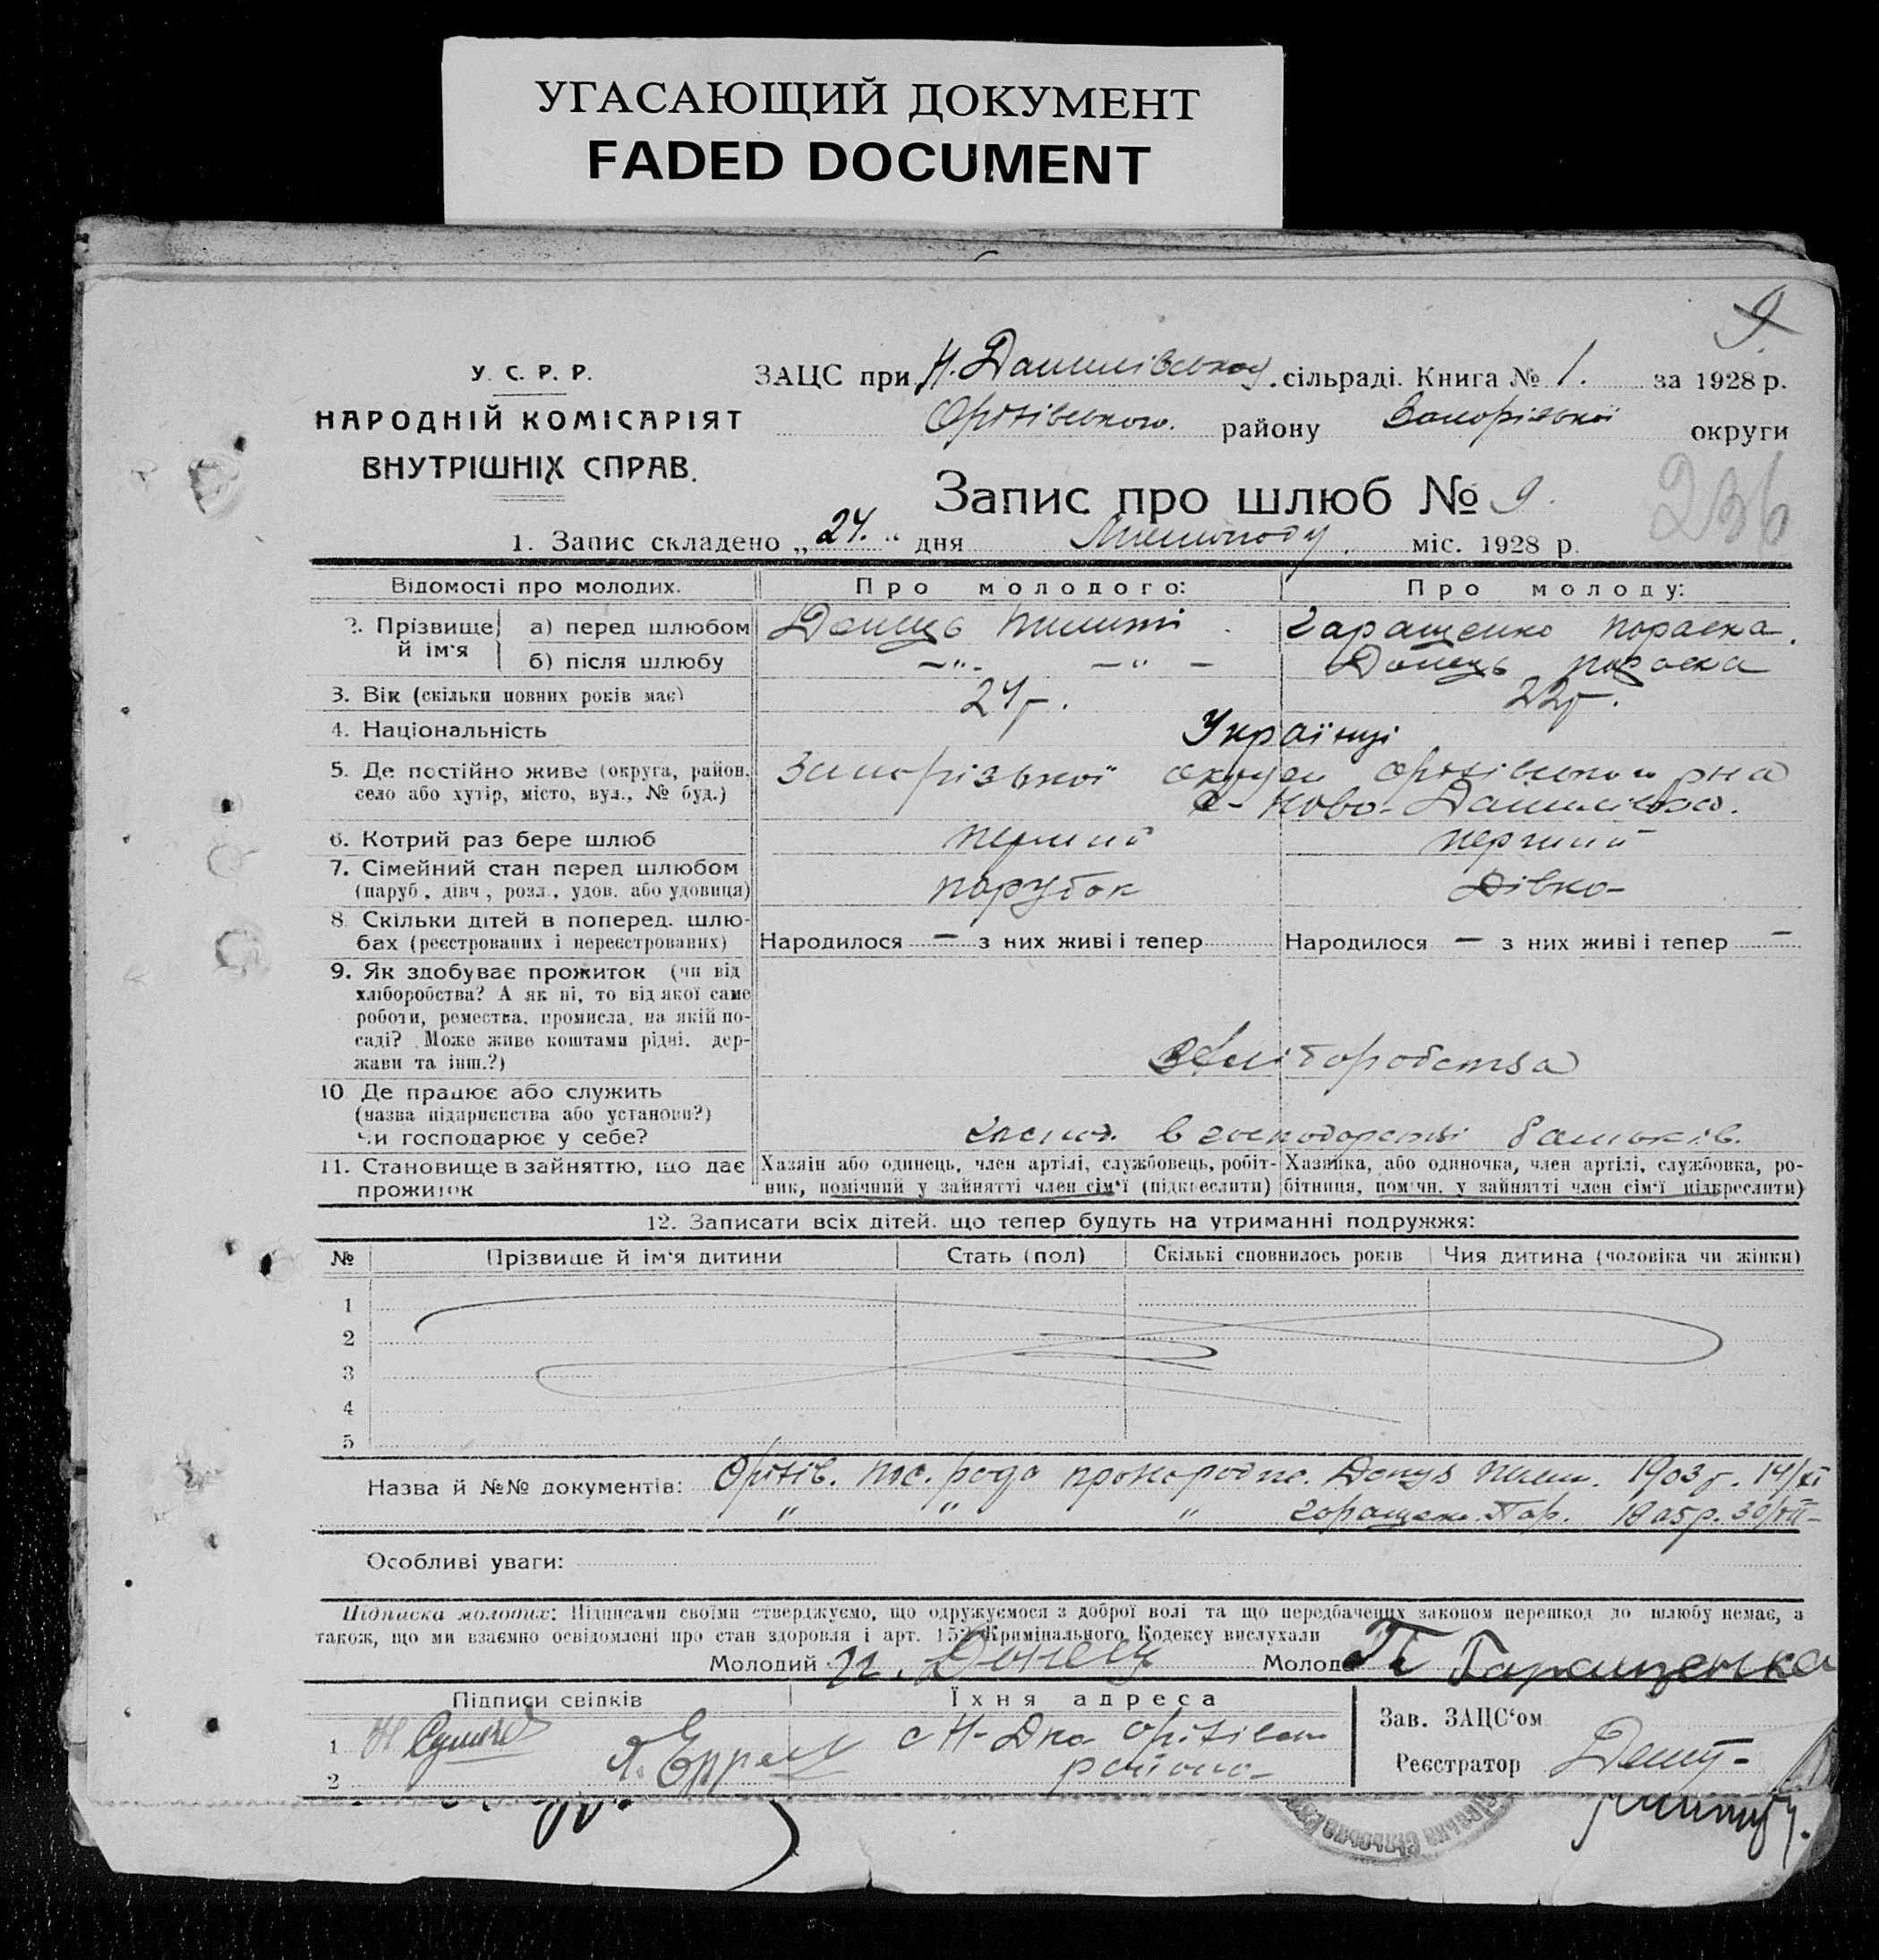 УГАСАЮЩИЙ ДОКУМЕНТ
FADED DOCUMENT
9
У. С. Р. Р.
НАРОДНІЙ КОМІСАРІЯТ
ВНУТРІШНІХ СПРАВ.
ЗАЦС при Н. Данилівській сільраді. Книга № 1. за 1928 р.
Оріхівського району Запорізької округи
Запис про шлюб № 9.
236
1. Запис складено „24." дня Листопаду міс. 1928 р.
Відомості про молодих. Про молодого: Про молоду:
2. Прізвище й ім'я а) перед шлюбом Донець Гаращенко Параска.
б) після шлюбу —"— —"— Донець Параска
3. Вік (скільки повних років має) 24 р. 22 р.
4. Національність Українці
5. Де постійно живе (округа, район, село або хутір, місто, вул., № буд.) Запорізької округи Оріхівського р-на
с- Ново-Данилівка.
6. Котрий раз бере шлюб перший перший
7. Сімейний стан перед шлюбом (паруб., дівч., розл., удов. або удовиця) парубок дівка
8. Скільки дітей в поперед. шлюбах (реєстрованих і нереєстрованих) Народилося — з них живі і тепер Народилося — з них живі і тепер —
9. Як здобуває прожиток (чи від
хліборобства? А як ні, то від якої саме
роботи, ремества, промисла, на якій по-
саді? Може живе коштами рідні, дер-
жави та інш.?) хліборобства
10. Де працює або служить
(назва підприємства або установи?)
чи господарює у себе? в господарстві батьків.
11. Становище в зайняттю, що дає прожиток
Хазяїн або одинець, член артілі, службовець, робіт-
ник, помічний у зайнятті член сім'ї (підкреслити)
Хазяйка, або одиночка, член артілі, службовка, ро-
бітниця, помічн. у зайнятті член сім'ї підкреслити)
12. Записати всіх дітей, що тепер будуть на утриманні подружжя:
№ Прізвище й ім'я дитини Стать (пол) Скількі сповнилось років Чия дитина (чоловіка чи жінки)
1
2
3
4
5
Назва й №№ документів: Оріхів. рода про народж. Донць 1903 р. 14/XI
" " " Гаращенко Пар. 1905 р. 30/VII
Особливі уваги:
Підписка молодих: Підписами своїми стверджуємо, що одружуємося з доброї волі та що передбачених законом перешкод до шлюбу немає, а
також, що ми взаємно освідомлені про стан здоровля і арт. 152 Кримінального Кодексу вислухали
Молодий Донец Молода П Гаращенка
Підписи свідків Їхня адреса
Зав. ЗАЦС'ом
1 с Н-Дка Оріхівськ
2 района
Реєстратор